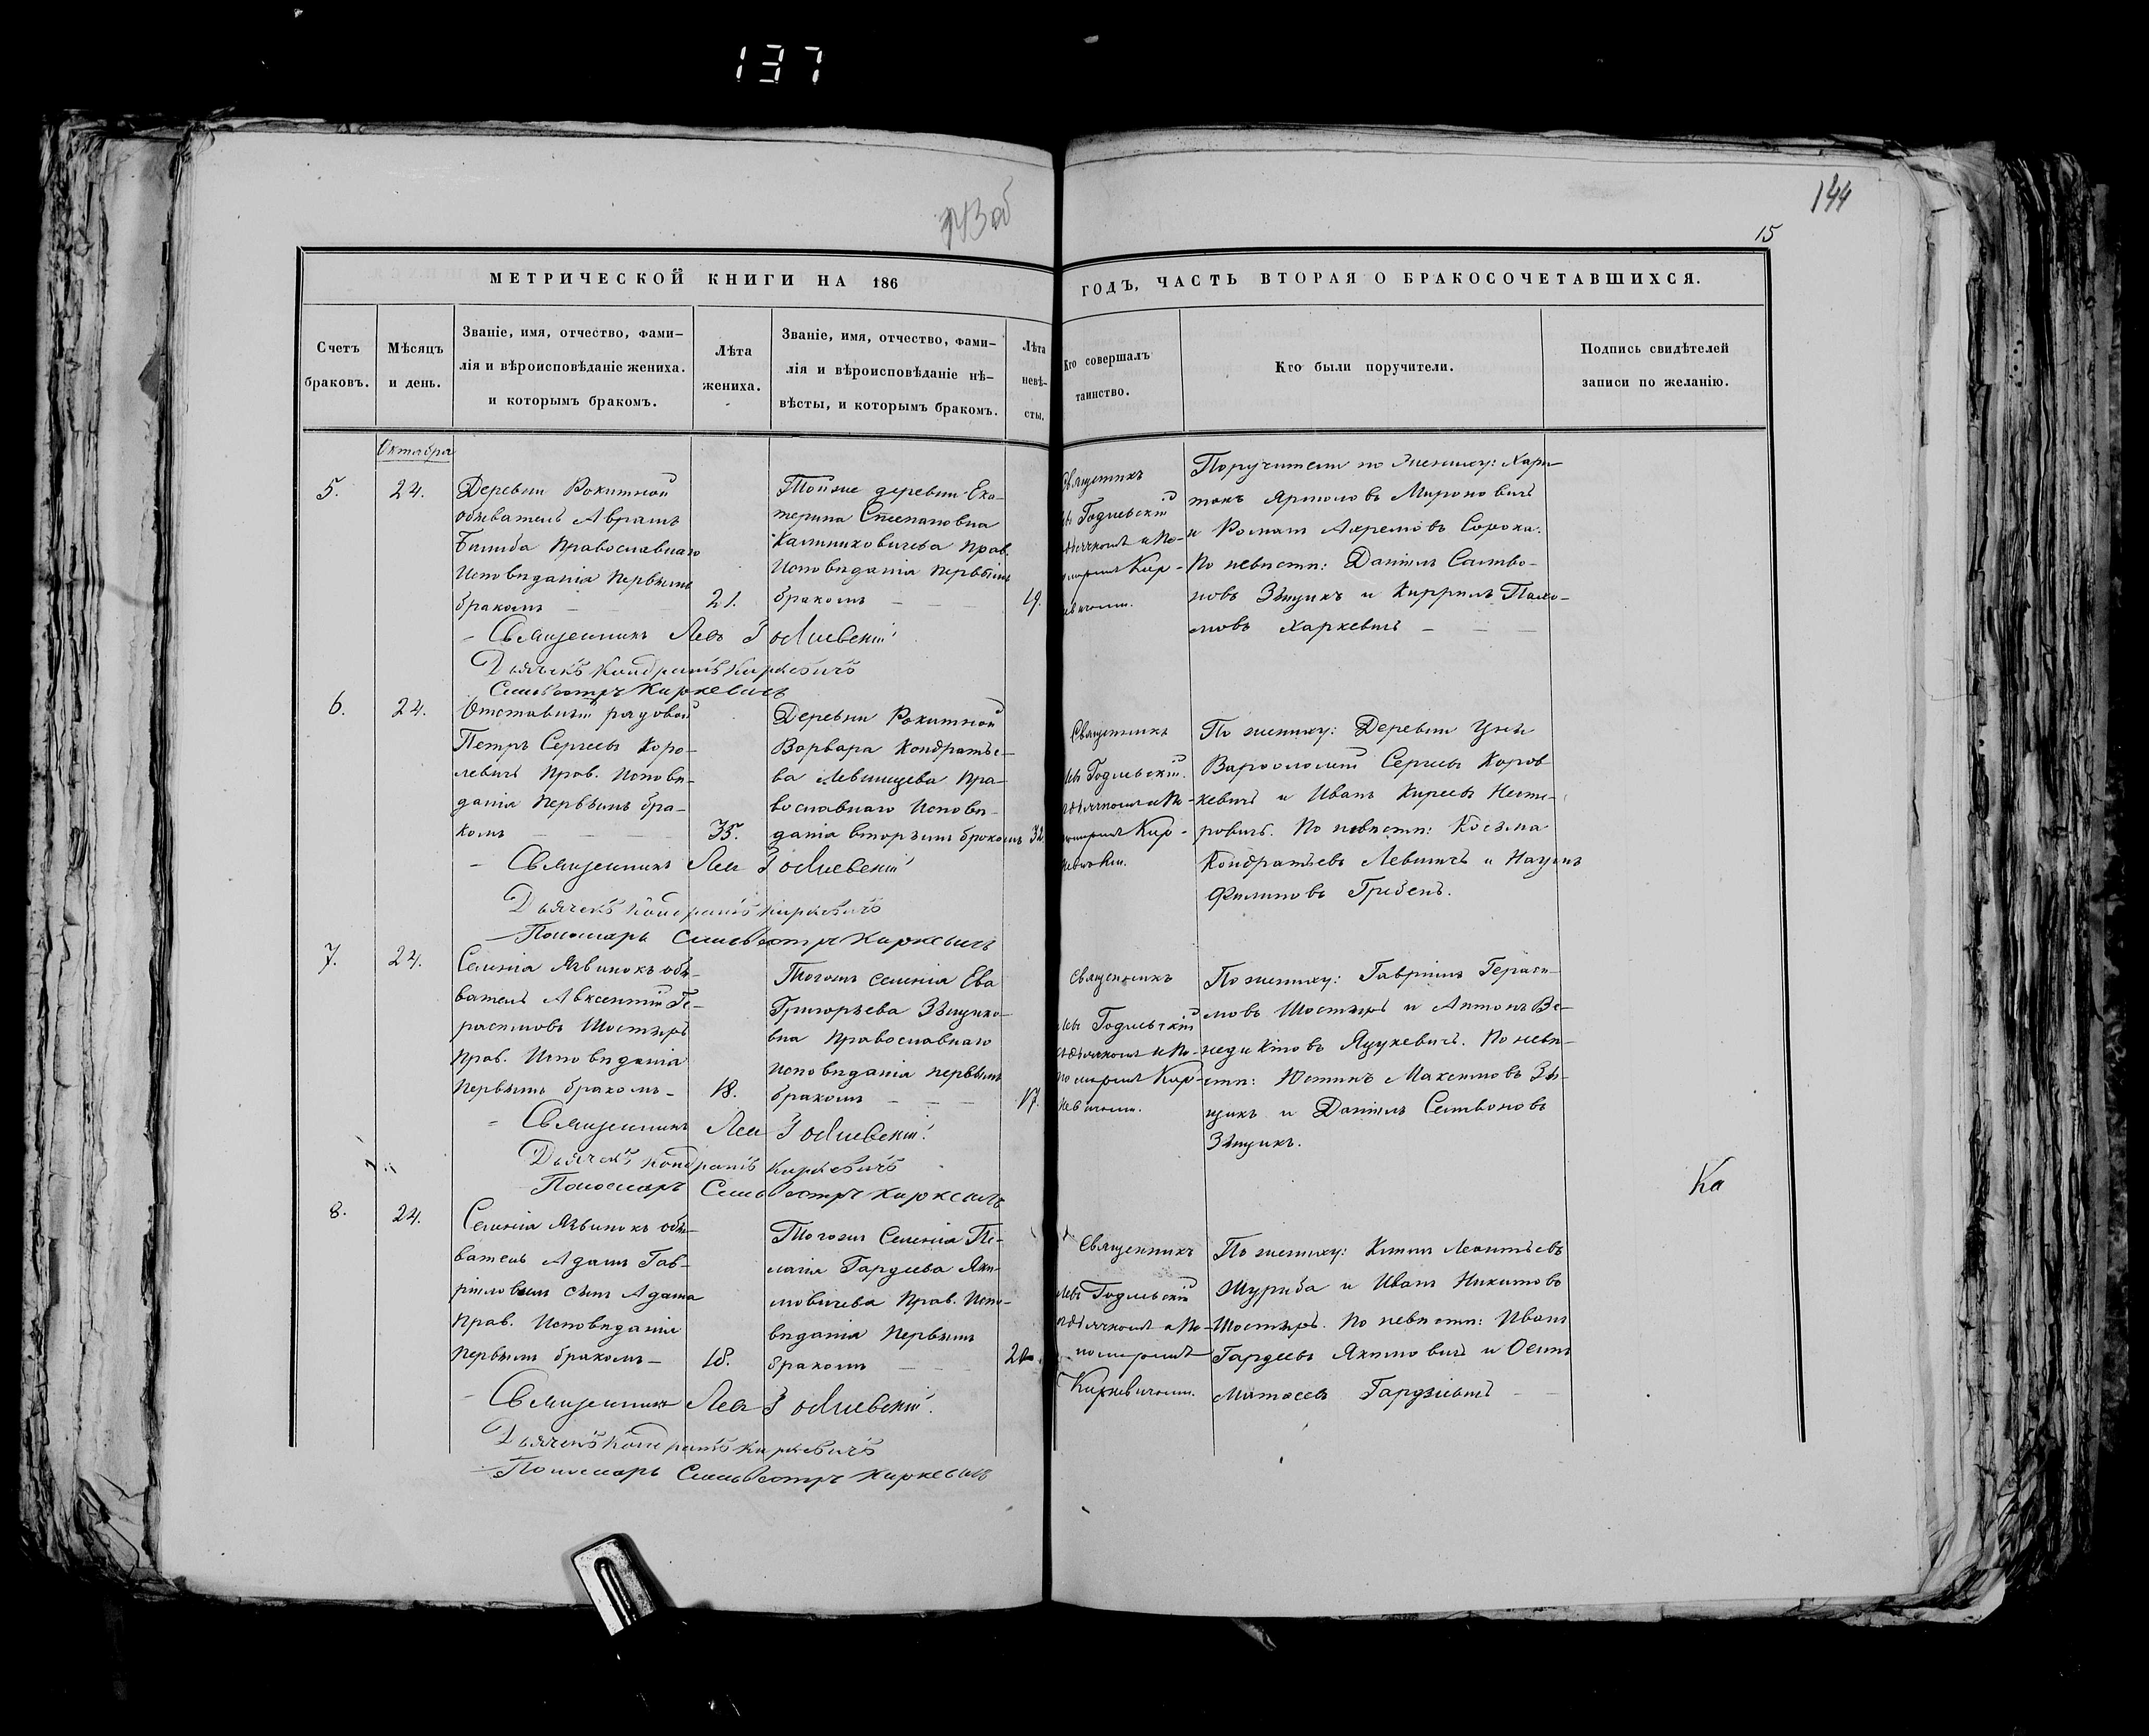 137
143 об
144
15
МЕТРИЧЕСКОЙ КНИГИ НА 186
ГОДЪ, ЧАСТЬ ВТОРАЯ О БРАКОСОЧЕТАВШИХСЯ.
Счетъ
браковъ.
Мѣсяцъ
и день.
Званіе, имя, отчество, фами-
лія и вѣроисповѣданіе жениха.
и которымъ бракомъ.
Лѣта
жениха.
Званіе, имя, отчество, фами-
лія и вѣроисповѣданіе нѣ-
вѣсты, и которымъ бракомъ.
Лѣта
невѣ-
сты.
Кто совершалъ
таинство.
Кто были поручители.
Подпись свидѣтелей
записи по желанію.
Октября
5.
24.
Деревни Рокитной
обыватель Аврамъ
Православнаго
Исповѣданія первымъ
бракомъ
21.
Тойже деревни Ека-
терина Степановна
Калиниковичева Прав.
Исповѣданія первымъ
бракомъ
19.
Священникъ
Левъ Годлевскій
съ дьячкомъ и По-
номаремъ Кир-
кевичами.
Поручители по жениху: Хари-
тонъ Ярмоловъ Мироновичъ
и Романъ Ахремовъ Сорока.
По невѣсти: Даніилъ Самво-
новъ Зѣщикъ и Киррилъ Пахо-
мовъ Харкевичъ
Священникъ Левъ Годлевскій
Дьячекъ Кондратъ Киркевичъ
Сильвестръ Киркевичъ
6.
24.
Отставный рядовой
Петръ Сергеевъ Коро-
левичъ Прав. Исповѣ-
данія первымъ бра-
комъ
35.
Деревни Рокитной
Варвара Кондратье-
ва Левшицева Пра-
вославнаго Исповѣ-
данія вторымъ бракомъ
32
Священникъ
Левъ Годлевскій.
съ дьячкомъ и По-
номаремъ Кир-
кевичами.
По жениху: Деревни Цны
Варфоломей Сергеевъ Коров
кевичъ и Иванъ Киреевъ Несте-
ровичъ. По невѣсти: Косьма
Кондратьевъ Левшичъ и Наумъ
Филиповъ Гребень.
Священникъ Левъ Годлевскій
Дьячекъ Кондратъ Киркевичъ
Пономарь Сильвестръ Киркевичъ
7.
24.
Селенія Язвинокъ обы-
ватель Авксентій Ге-
расимовъ Шостыръ
Прав. Исповѣданія
первымъ бракомъ
18.
Тогожъ селенія Ева
Григорьева Зѣщико-
вна Православнаго
исповѣданія первымъ
бракомъ
17.
Священникъ
Левъ Годлевскій
съ дьячкомъ и По-
номаремъ Кир-
кевичами.
По жениху: Гавріилъ Гераси-
мовъ Шостыръ и Антонъ Ве-
недиктовъ Яцукевичъ. По невѣ-
сти: Юстинъ Максимовъ Зѣ-
щикъ и Даніилъ Самвоновъ
Зѣщикъ.
Священникъ Левъ Годлевскій.
Дьячекъ Кондратъ Киркевичъ
Пономарь Сильвестръ Киркевичъ
Ка
8.
24.
Селенія Язвинокъ обы-
ватель Адамъ Гав-
ріиловъ сынъ Адама
Прав. Исповѣданія
первымъ бракомъ
18.
Тогожъ Селенія Пе-
лагія Гардеева Яки-
мовичева Прав. Испо-
вѣданія первымъ
бракомъ
Священникъ
Левъ Годлевскій
съ дьячкомъ и По-
номаремъ
Киркевичами.
По жениху: Климъ Леонтьевъ
Шуриба и Иванъ Никитовъ
Шостыръ. По невѣсти: Иванъ
Гардеевъ Якимовичъ и Осипъ
Матвеевъ Гардзіевичъ
Священникъ Левъ Годлевскій.
Дьячекъ Кондратъ Киркевичъ
Пономарь Сильвестръ Киркевичъ